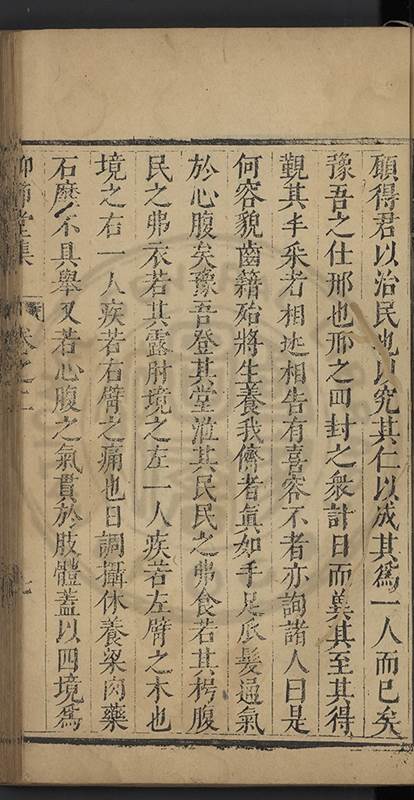 願得君以治民也以究其仁以成其爲一人而已矣
豫吾之仕邢也邢之四封之衆計日而兾其至其得
覩其丰采者相迓相告有喜容不者亦詢諸人曰是
何容貌齒籍殆將生養我儕者眞如手足爪髮通氣
於心腹矣豫吾登其堂涖其民民之弗食若其枵腹
民之弗衣若其露肘境之左一人疾若左臂之木也
境之右一人疾若右臂之痛也日調攝休養粱肉藥
石麽不具舉又若心腹之氣貫於肢體蓋以四境爲
仰節堂集
卷之二
七